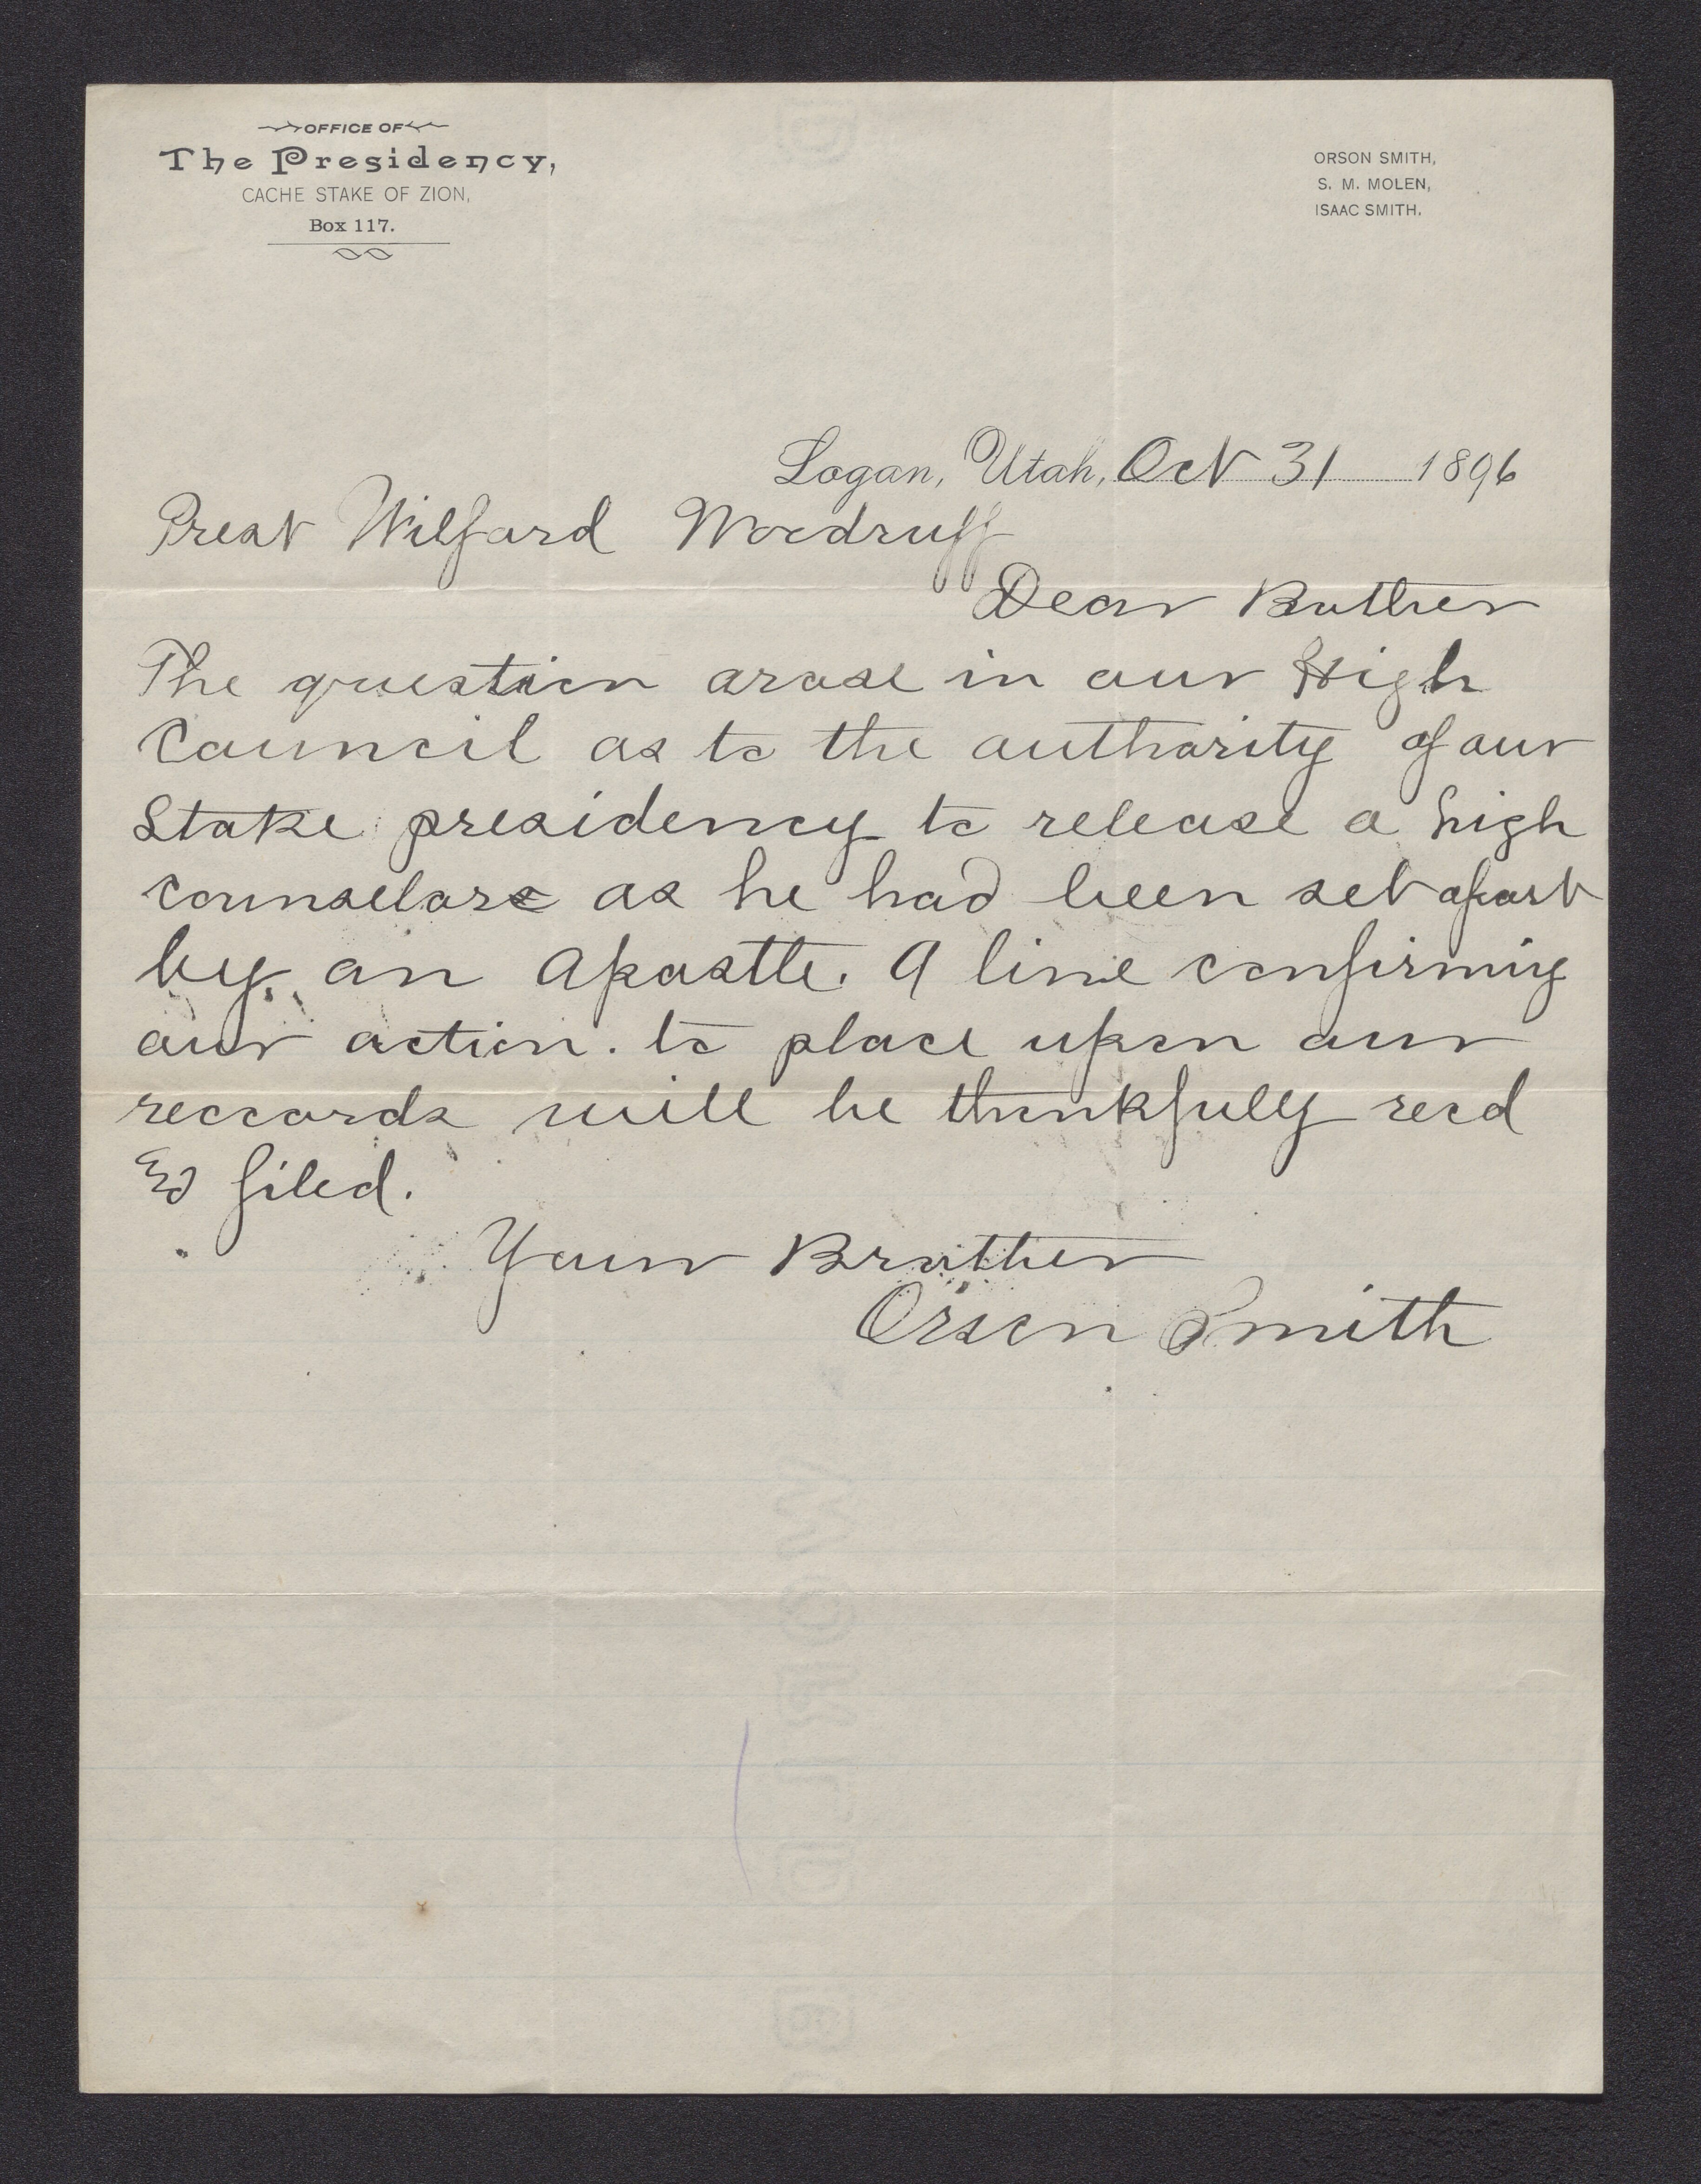 OFFICE OF
The Presidency,
CACHE STAKE OF ZION,
Box 117.
ORSON SMITH,
S. M. MOLEN,
ISAAC SMITH,
Logan, Utah, Oct 31 1896
Prest Wilford Woodruff
Dear Brother
The question arose in our High
Council as to the authority of our
Stake presidency to release a high
counselors as he had been set apart
by an Apostle. A line confirming
our action. to place upon our
reccords will be thankfully recd
& filed.
Your Brother
Orson Smith